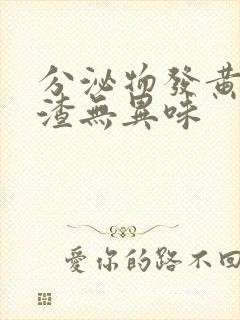 分泌物發黃
渣無異味
愛你的路不回